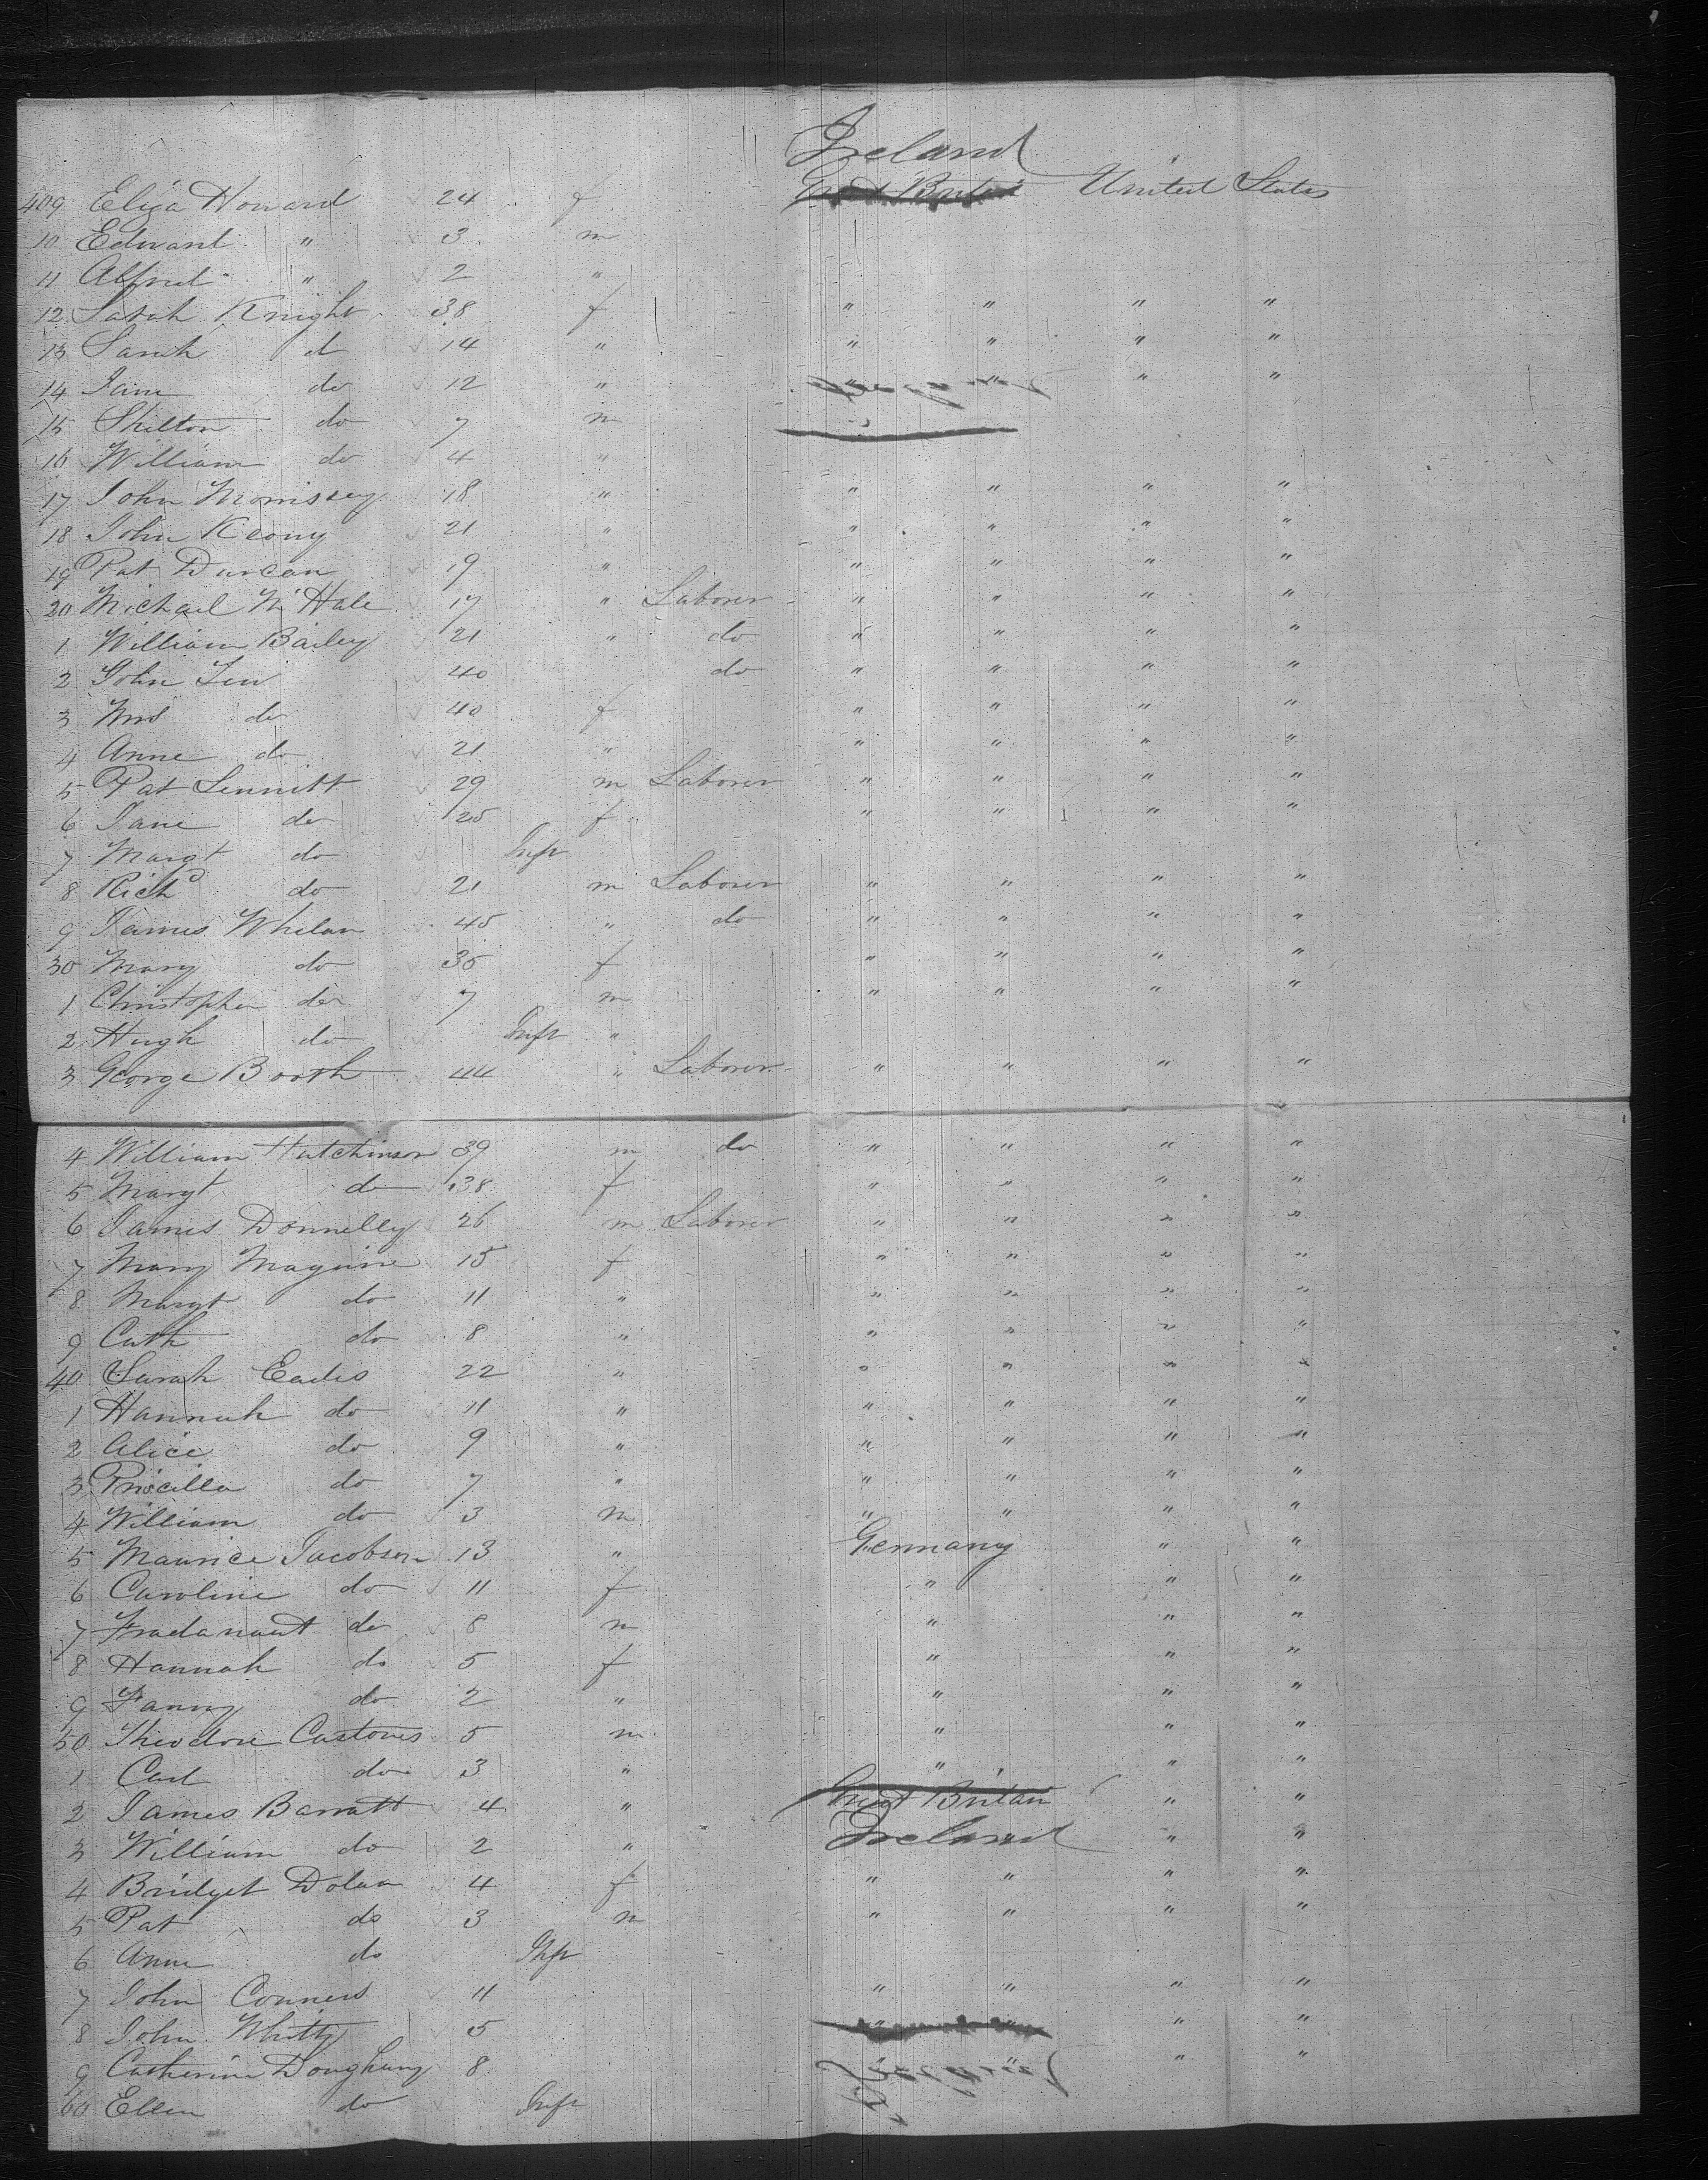 Ireland
409 Eliza Howard 24 f Great Britain United States
10 Edward " 3 m
11 Alfred " 2 "
12 Sarah Knight 38 f " " " "
13 Sarah d 14 " " " " "
14 Jane do 12 " " " " "
15 Skelton do 7 m
16 William do 4 "
17 John Morrissey 18 " " " " "
18 John Keony 21 " " " " "
19 Pat Duncan 19 " " " " "
20 Michael McHale 17 " Laborer " " " "
1 William Bailey 21 " do " " " "
2 John 40 do " " " "
3 Mrs do 40 f " " " "
4 Anne do 21 " " " " "
5 Pat Sennitt 29 m Laborer " " " "
6 Jane do 25 f " " " "
7 Margt do Inft
8 Richd do 21 m Laborer " " " "
9 James Whelan 45 " do " " " "
30 Mary do 35 f " " " "
1 Christopher do 7 m " " " "
2 Hugh do Inft "
3 George Booth 44 " Laborer " " " "
4 William Hutchinson 39 m do " " " "
5 Margt do 38 f " " " "
6 James Donnelly 26 m Laborer " " " "
7 Mary Maguire 15 f " " " "
8 Margt do 11 " " " " "
9 Cath do 8 " " " " "
40 Sarah Eades 22 " " " " "
1 Hannah do 11 " " " " "
2 Alice do 9 " " " " "
3 Priscilla do 7 " " " " "
4 William do 3 m " " " "
5 Maurice Jacobson 13 " Germany " "
6 Caroline do 11 f " " "
7 do 8 m " " "
8 Hannah do 5 f " " "
9 Fanny do 2 " " " "
50 Theodore Castones 5 m " " "
1 Carl do 3 " " " "
2 James Barratt 4 " Great Britain " "
3 William do 2 " Ireland " "
4 Bridget Dolan 4 f " " " "
5 Pat do 3 m " " " "
6 Anne do Inft
7 John Conners 11 " " " "
8 John Whitty 5 " " " "
9 Catherine Doughany 8 " " " "
60 Ellen do Inft